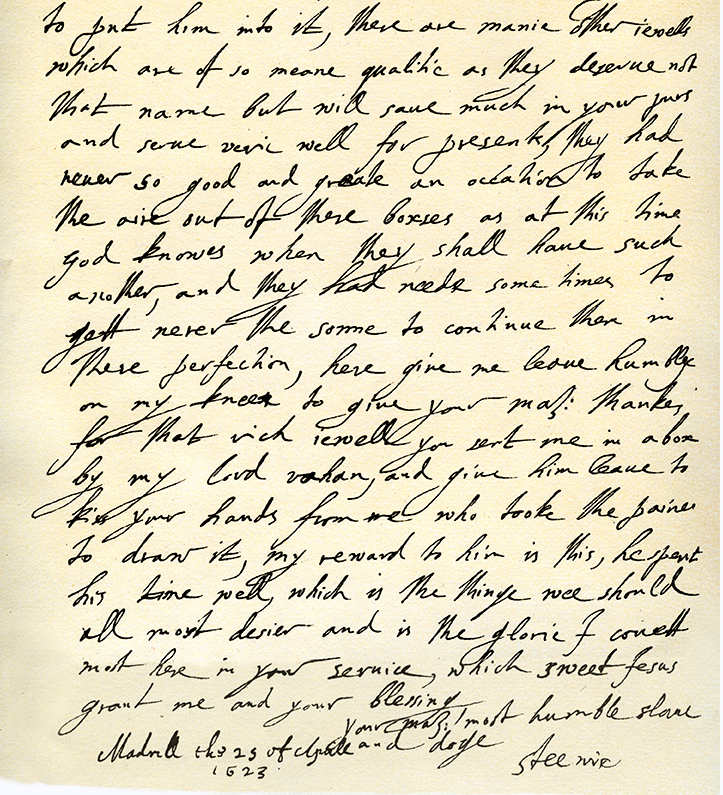 to put him into it, there are manie other iewells
which are of so meane qualitie as they deserve not
that name but will saue much in your purs
and serve verie well for presents, they had
never so good and greate an occation to take
the aire out of there boxses as at this time
God knowes when they shall haue such
another, and they had neede some times to
gett never the sonne to continue them in
there perfection, here give me leave humblie
on my knees to give your maj: thankes
for that rich iewell you sent me in a box
by my lord vahan, and give him leaue to
kiss your hands from me who tooke the paines
to draw it, my reward to him is this, he spent
his time well, which is the thinge wee should
all most desier and is the glorie I covett
most here in your service, which sweet Jesus
grant me and your blessing
your maj: most humble slaue
and doge
Madrill the 25 of Aprile
1623
Steenie